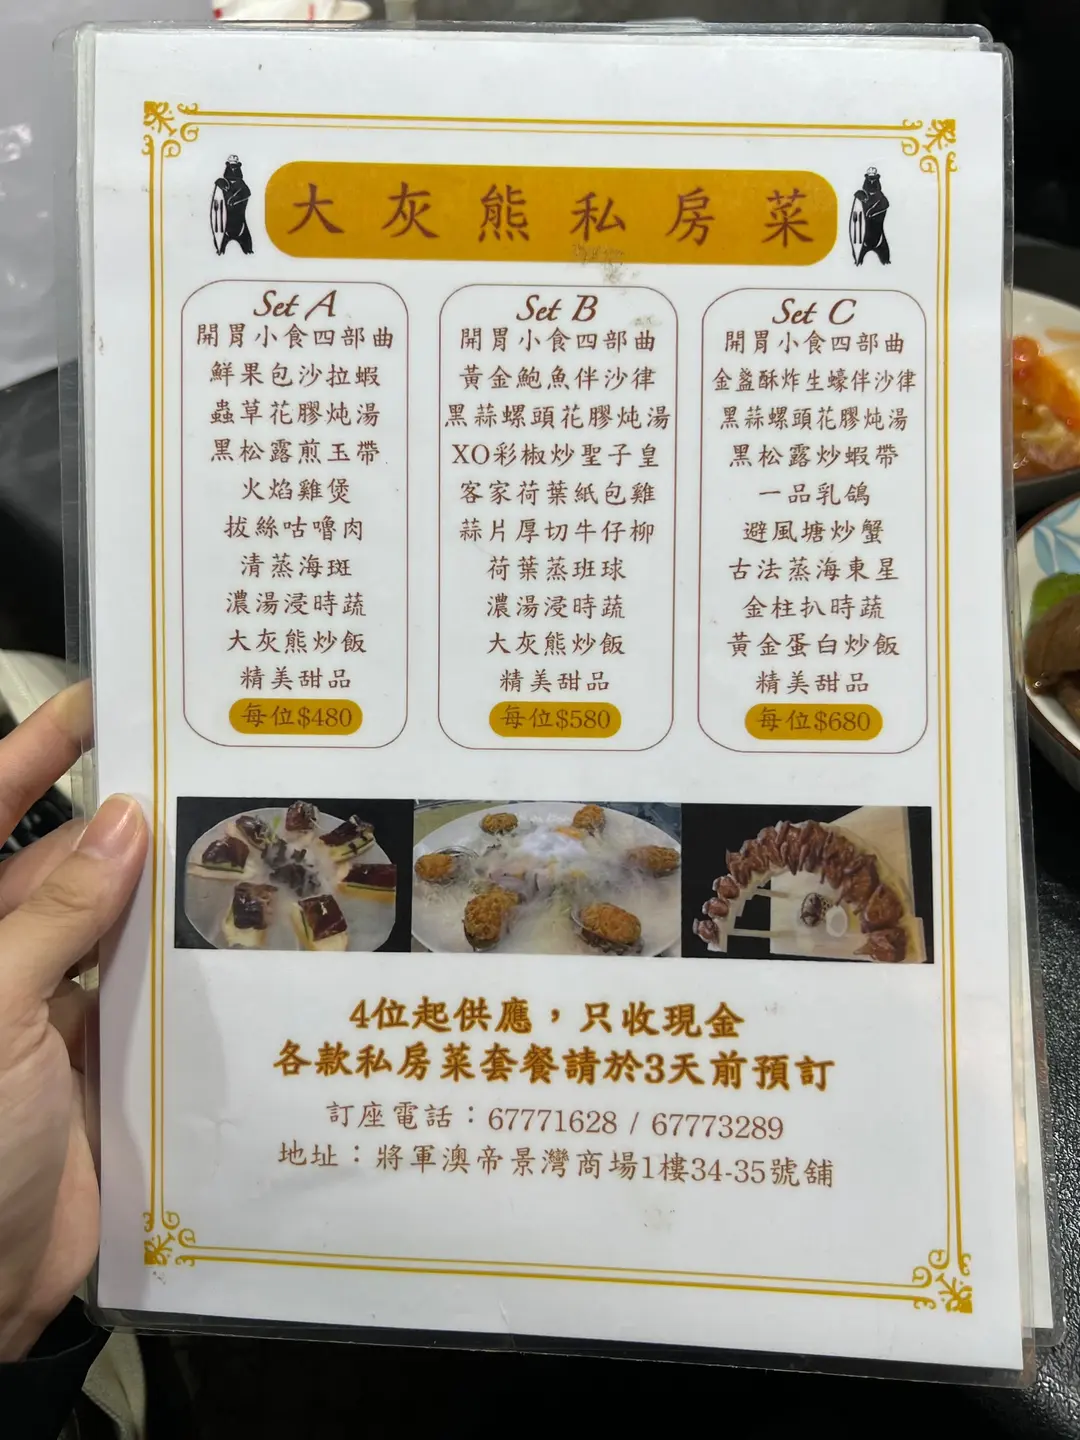 大灰熊私房菜
Set A
開胃小食四部曲
鮮果包沙拉蝦
蟲草花膠炖湯
黑松露煎玉帶
火焰雞煲
拔絲咕嚕肉
清蒸海斑
濃湯浸時蔬
大灰熊炒飯
精美甜品
每位$480
Set B
開胃小食四部曲
黃金鮑魚伴沙律
黑蒜螺頭花膠炖湯
XO彩椒炒聖子皇
客家荷葉紙包雞
蒜片厚切牛仔柳
荷葉蒸班球
濃湯浸時蔬
大灰熊炒飯
精美甜品
每位$580
Set C
開胃小食四部曲
金盞酥炸生蠔伴沙律
黑蒜螺頭花膠炖湯
黑松露炒蝦帶
一品乳鴿
避風塘炒蟹
古法蒸海東星
金柱扒時蔬
黃金蛋白炒飯
精美甜品
每位$680
4位起供應，只收現金
各款私房菜套餐請於3天前預訂
訂座電話：67771628 / 67773289
地址：將軍澳帝景灣商場1樓34-35號舖